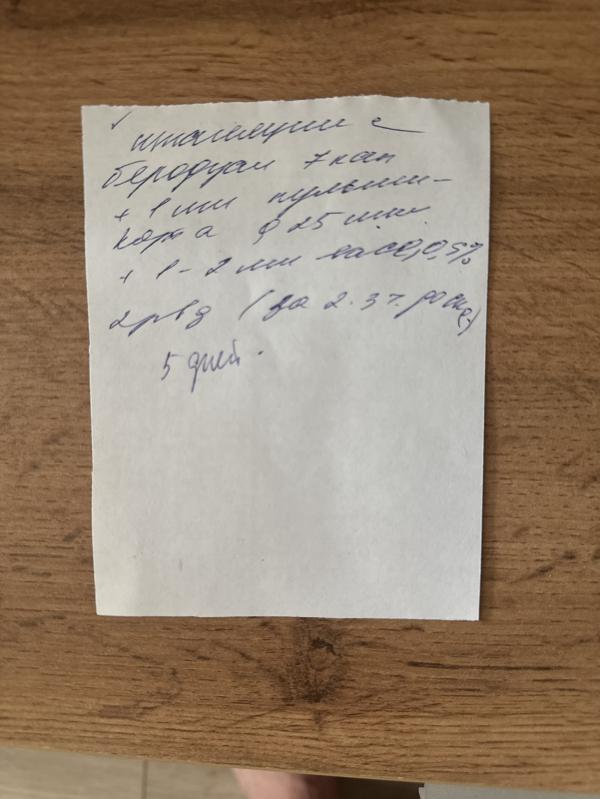 ингаляции с
беродуал 7 кап
+ 1 мл пульми-
корта 0,25 мл
+ 1-2 мл NaCl 0,9%
2 р в д (за 2-3 ч. до сна)
5 дней.